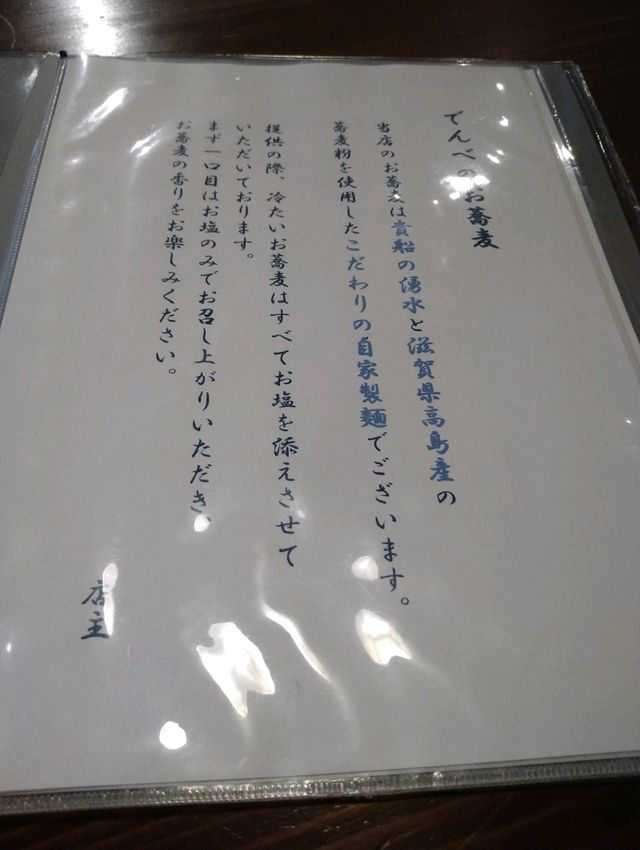 でんべのお蕎麦
当店のお蕎麦は貴船の湧水と滋賀県高島産の
蕎麦粉を使用したこだわりの自家製麺でございます。
提供の際、冷たいお蕎麦はすべてお塩を添えさせて
いただいております。
まず一口目はお塩のみでお召し上がりいただき、
お蕎麦の香りをお楽しみください。
店主